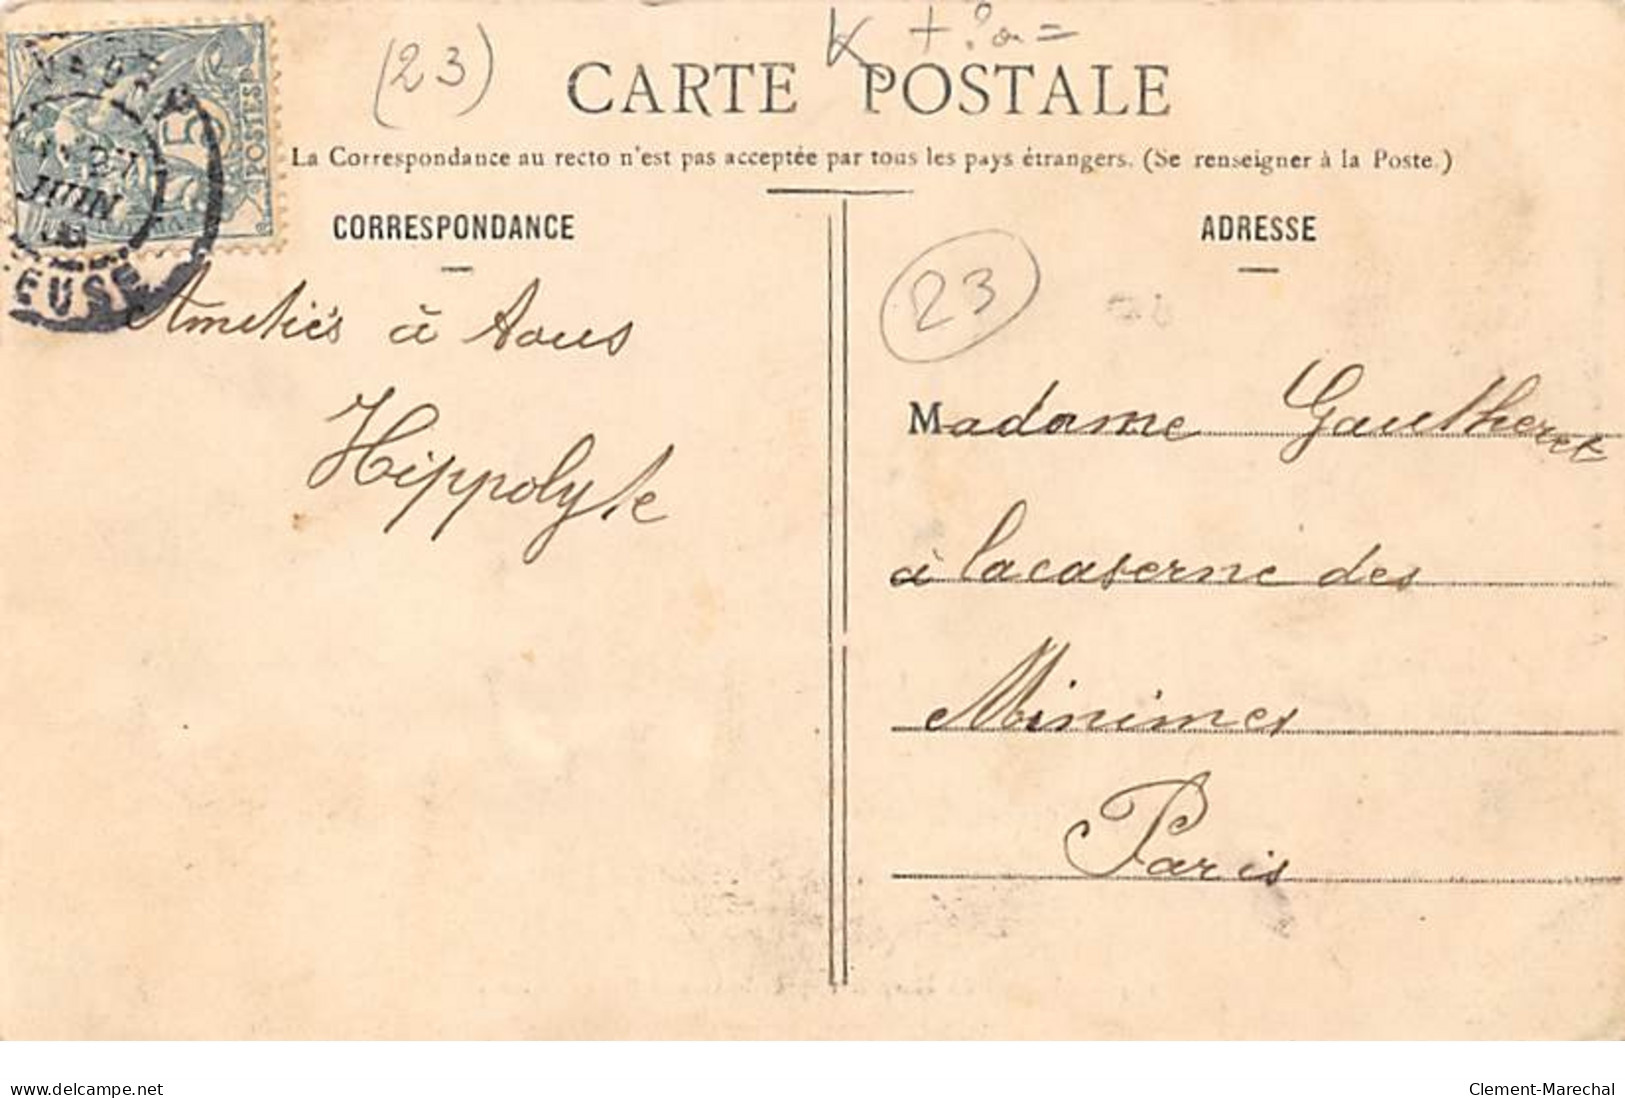 (23)
CARTE POSTALE
La Correspondance au recto n'est pas acceptée par tous les pays étrangers. (Se renseigner à la Poste.)
5
POSTES
27
JUIN
EUSE
CORRESPONDANCE
ADRESSE
23
Ametiés à tous
Hippolyte
Madame Gautheret
à la caserne des
Minimes
Paris
www.delcampe.net
Clement-Marechal